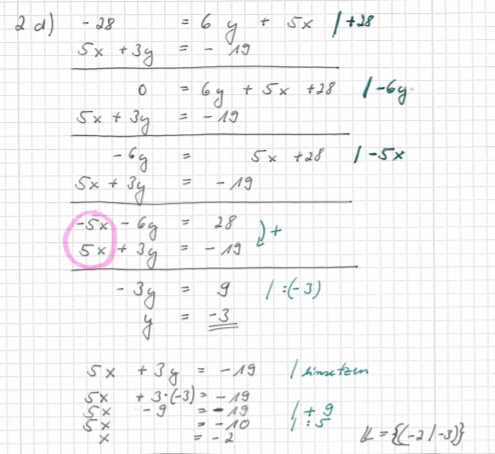 2 d) -28 = 6 y + 5x | +28
5x + 3y = - 19
0 = 6y + 5x + 28 | -6y
5x + 3y = - 19
-6y = 5x + 28 | -5x
5x + 3y = - 19
-5x - 6y = 28 ) +
5x + 3y = - 19
- 3y = 9 | :(-3)
y = -3
5x + 3y = - 19 | einsetzen
5x + 3·(-3) = - 19
5x - 9 = - 19 | + 9
5x = - 10 | : 5
x = - 2 𝕃 = {(-2 | -3)}